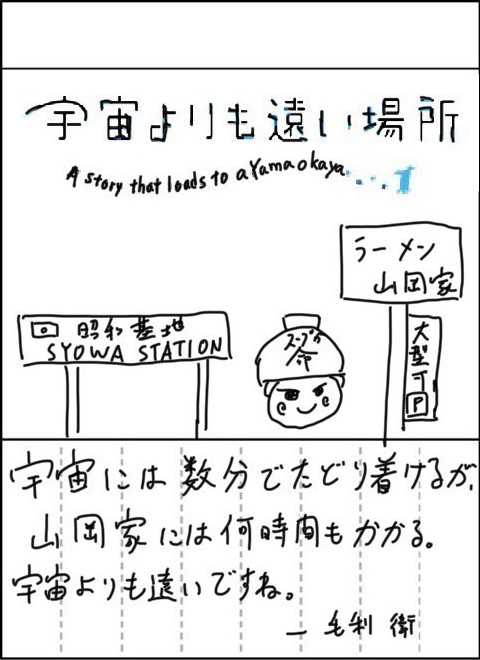 宇宙よりも遠い場所
A story that leads to a Yamaokaya
ラーメン
山岡家
大型可
P
昭和基地
SYOWA STATION
スープが
命
宇宙には数分でたどり着けるが、
山岡家には何時間もかかる。
宇宙よりも遠いですね。
― 毛利 衛